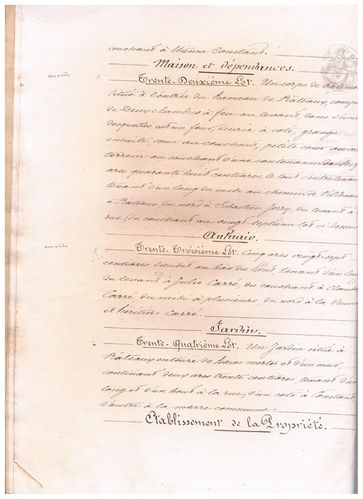 couchant à Mème Constant.
Maison et dépendances.
Trente-Deuxième Lot. Un corps de bâtiment
situé à l'entrée du hameau de Bâteaux, comp
de deux chambres à feu au levant, dans l'une
desquelles est un four, écurie à côté, grange
ensuite, cour au couchant, petite cour au
terrain au couchant d'une contenance de
ares quarante huit centiares, le tout s'entretenant
tenant d'un long du midi au chemin de
à Bâteaux du nord à Sébastien Jorry, du levant à
rue, du couchant au vingt septième lot ci-dessus
Aulnaie.
Trente-Troisième Lot. Cinq ares vingt sept
centiares lieudit au bas du tenant d'un long
du levant à Julie Carré, du couchant à
Carré du midi à plusieurs du nord à la
et héritiers Carré.
Jardin.
Trente-Quatrième Lot. Un Jardin situé à
Bâteaux entouré de haies mortes et d'un mur,
contenant deux ares trente centiares tenant d'un
long et d'un bout à la rue, d'un côté à Constant
d'autre à la mare commune.
Etablissement de la Propriété.